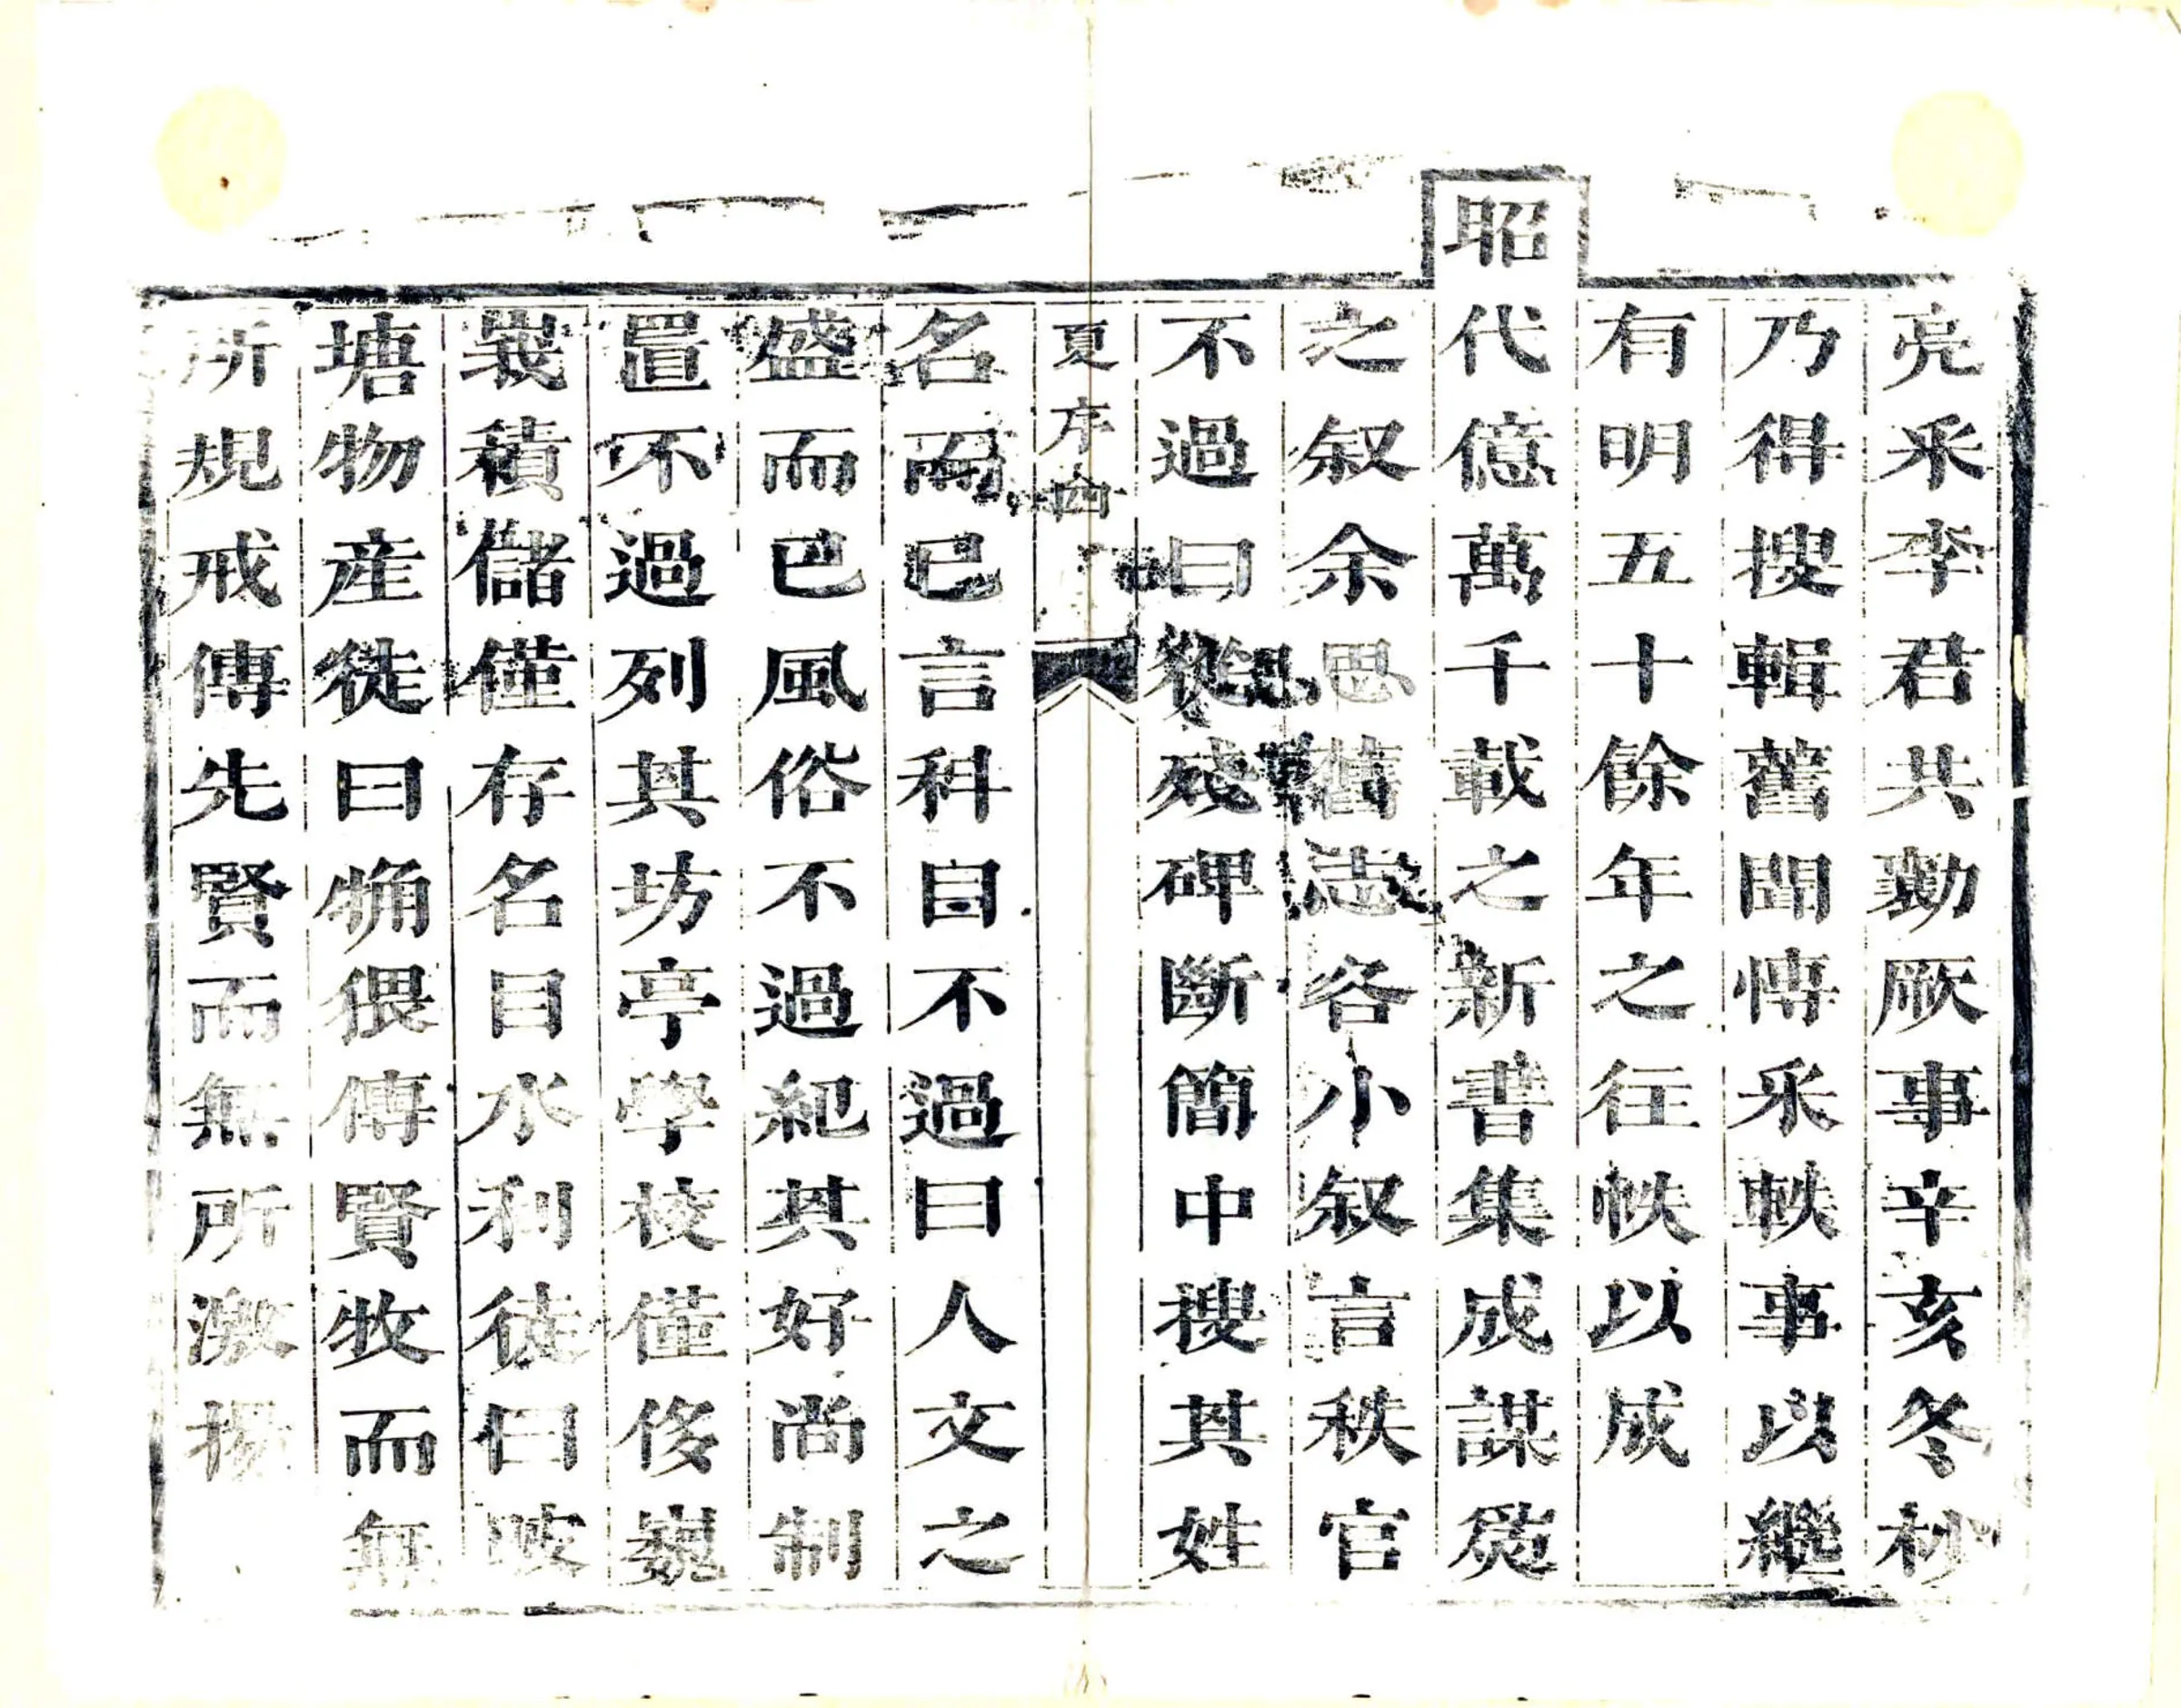 亮采李君共勷厥事辛亥冬杪
乃得搜輯舊聞慱采軼事以繼
有明五十餘年之往帙以成
昭代億萬千載之新書集成謀爰
之叙余思舊志各小叙言秩官
不過曰從殘碑斷簡中搜其姓
夏序四
名而已言科目不過曰人文之
盛而已風俗不過紀其好尚制
置不過列其坊亭學校僅侈巍
峩積儲僅存名目水利徒曰陂
塘物産徒曰觕猥傳賢牧而無
所規戒傳先賢而無所激揚